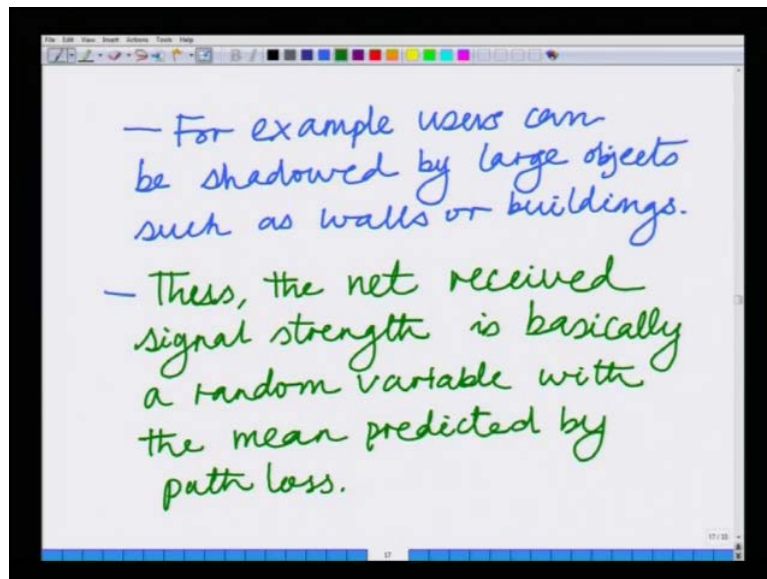 File Edit View Insert Actions Tools Help
— For example users can
be shadowed by large objects
such as walls or buildings.
— Thus, the net received
signal strength is basically
a random variable with
the mean predicted by
path loss.
17